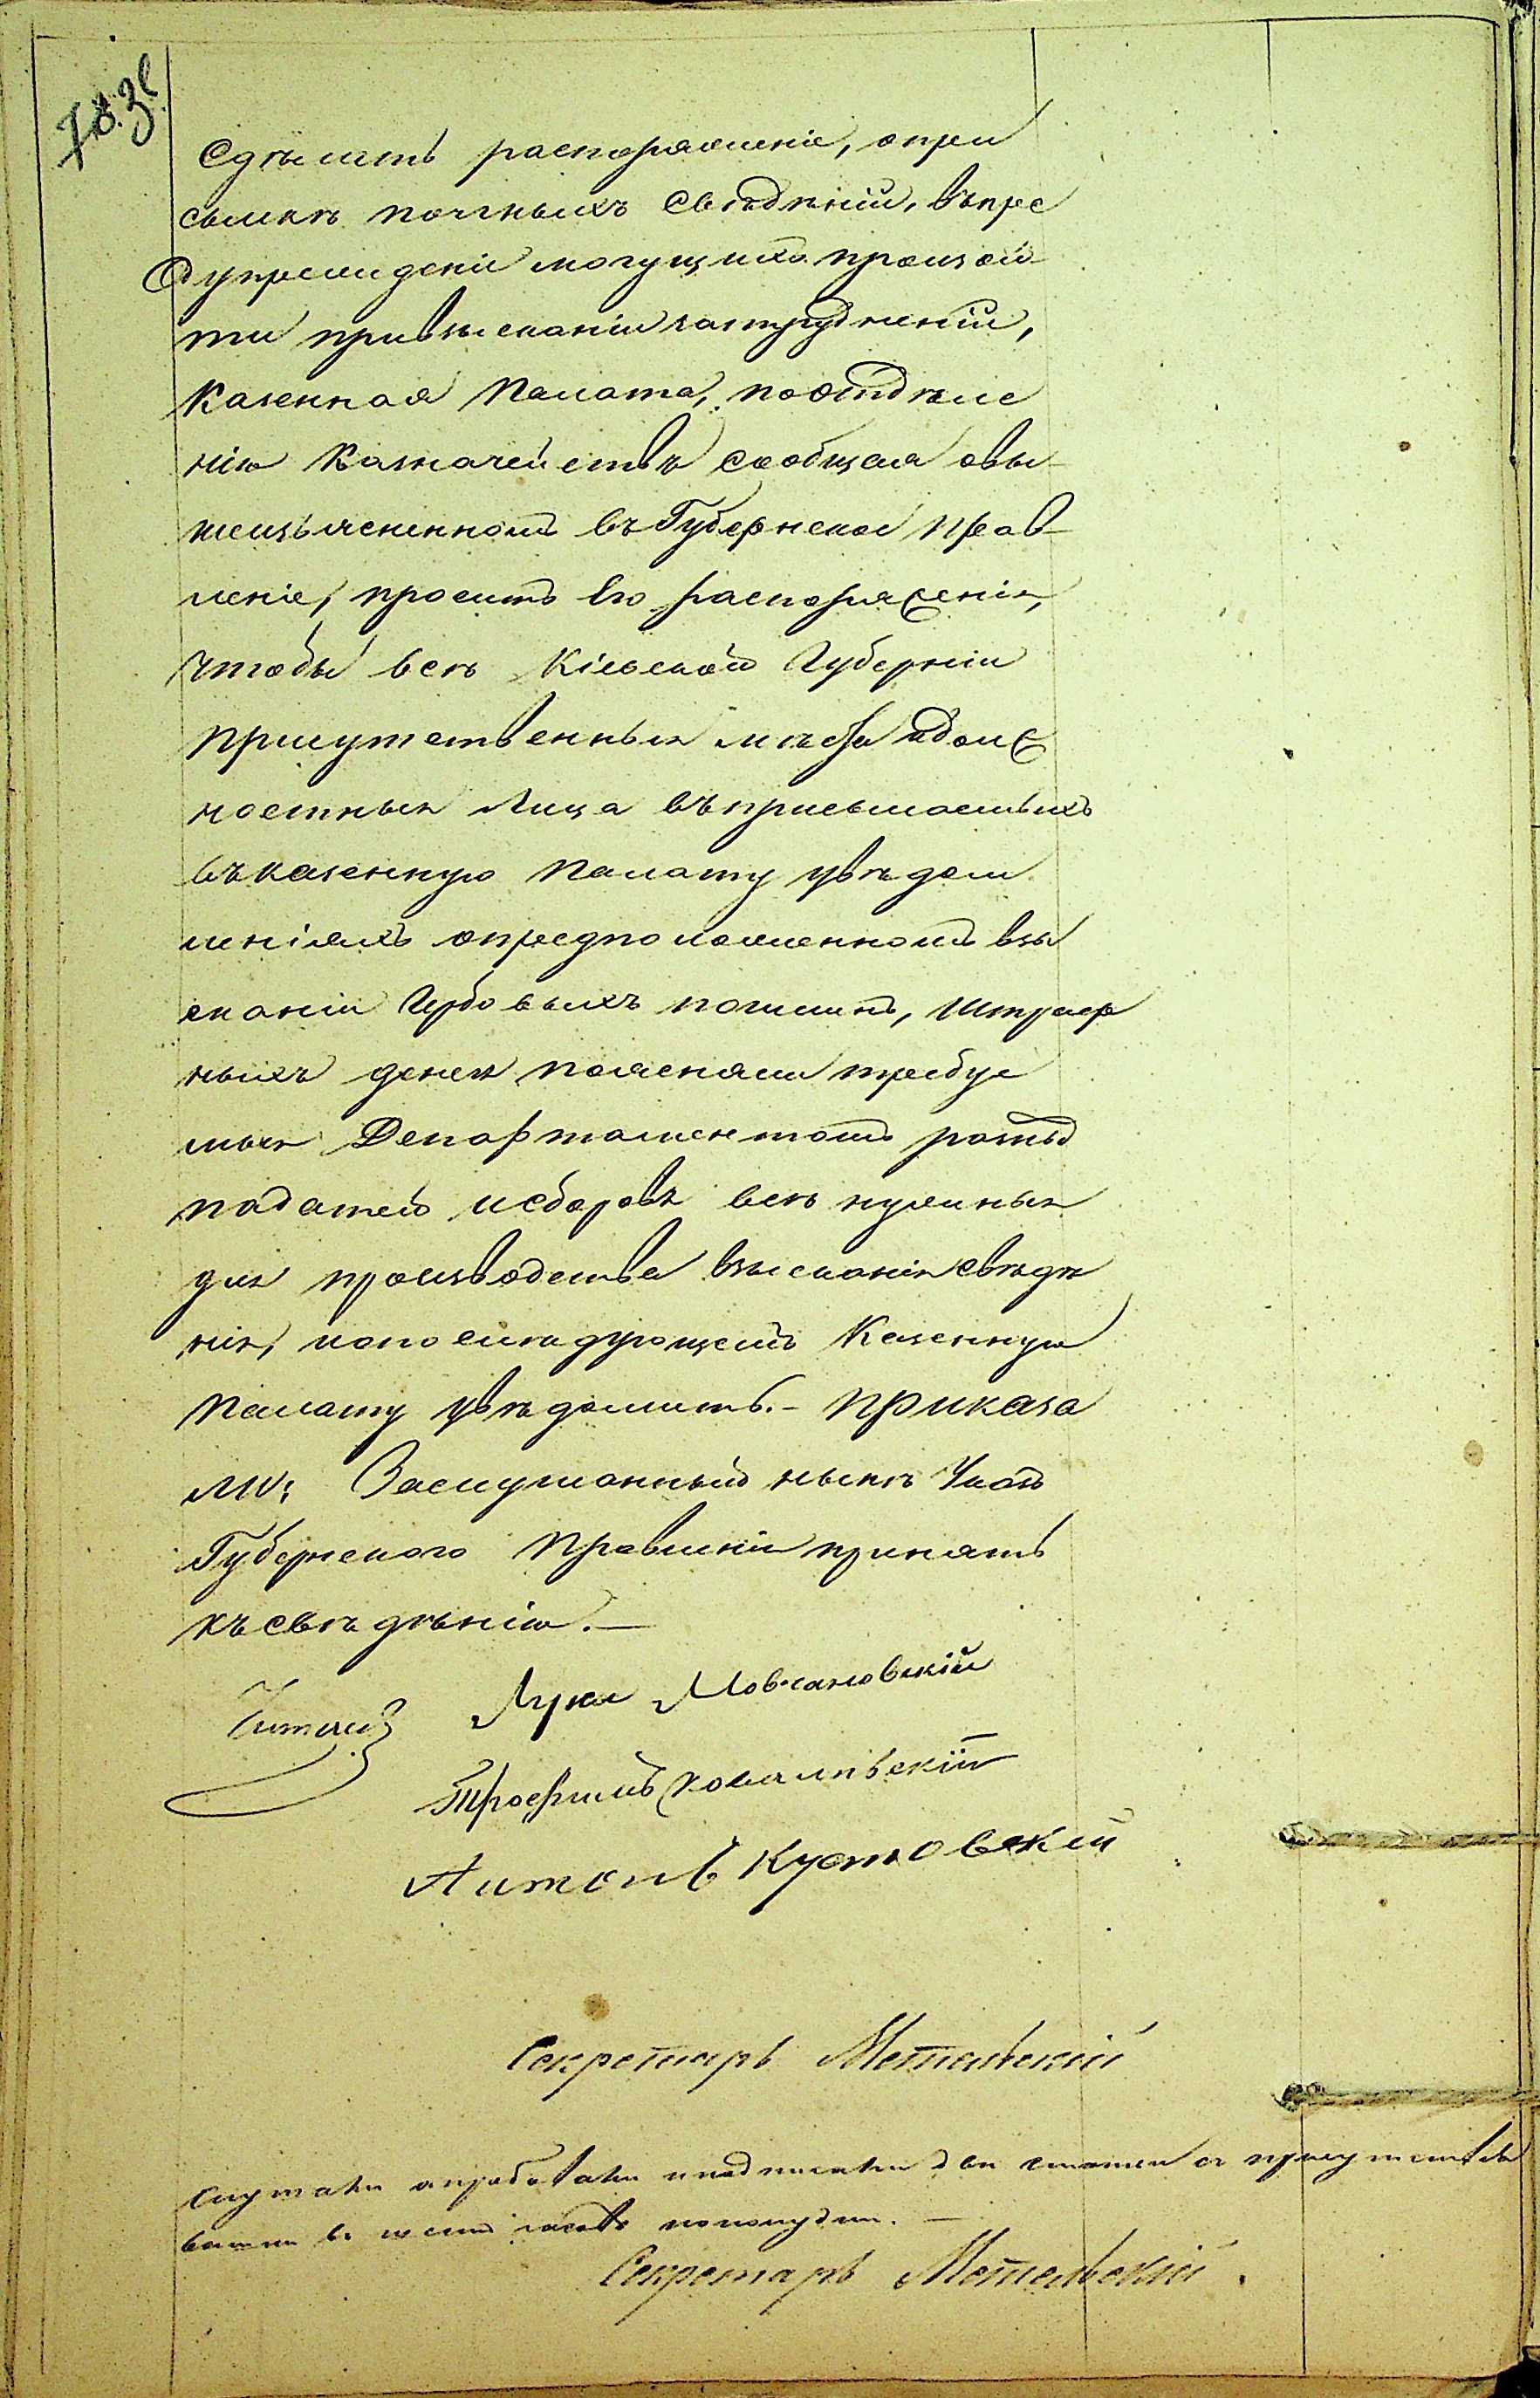 сдѣлать распоряженіе, опри
сылкѣ полныхъ свѣдѣній, въпре
дупрежденіе могущихъ произой-
ти привзысканіи затрудненій,
Казенная Палата, поотдѣле
нію Казначействъ сообщая овы-
шеизъясненномъ въ Губернское Прав-
леніе, проситъ его распоряженія,
чтобы всѣ Кіевской Губерніи
присутственныя мѣста идолж
ностныя Лица въприсылаемыхъ
въказенную Палату увѣдом
леніяхъ опредположенномъ взы
сканіи Гербовыхъ пошлинъ, Штраф
ныхъ денег поясняли требуе
мыя Департаментомъ разныхъ
податей исборовъ всѣ нужныя
для производства взысканія свѣдѣ
нія, ипопослѣдующемъ Казенную
Палату увѣдомить.- Приказа
ли: Заслушанный нынѣ Указъ
Губернскаго Правленія принять
къ свѣдѣнію.—
Читалъ Лука Мовчановскій
Трофимъ Ковалевскій
Антонъ Кустовскій
Секретарь Метельскій
Слушали и подписали двѣ статьи а присутство
вали до часовъ пополудни. —
Секретарь Метельскій.